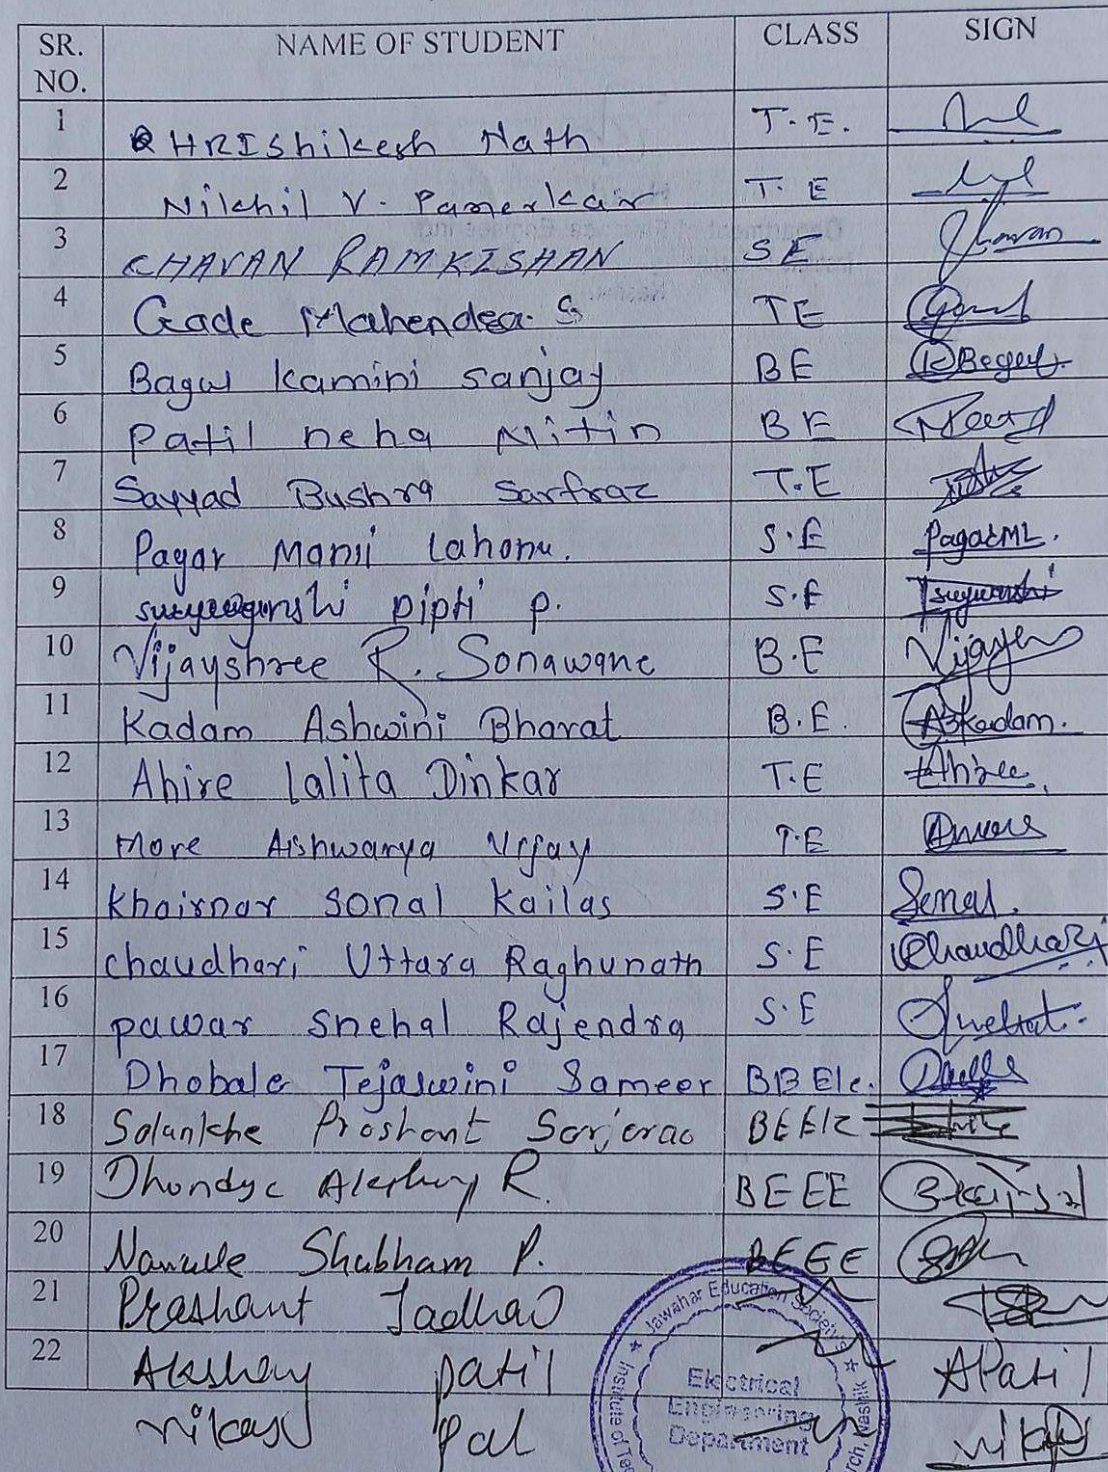 SR. NO. NAME OF STUDENT CLASS SIGN
1 HRIShikesh Nath T.E.
2 Nikhil V. Panerkar T.E
3 CHAVAN RAMKISHAN SE Chavan
4 Gade Mahendra. S TE
5 Bagul Kamini Sanjay BE
6 Patil neha Nitin BE
7 Sayyad Bushra Sarfraz T.E
8 Pagar Mansi Lahanu. S.E PagarML.
9 suryawanshi Dipti P. S.E
10 Vijayshree R. Sonawane B.E
11 Kadam Ashwini Bharat B.E. ABKadam.
12 Ahire Lalita Dinkar T.E Ahire
13 More Aishwarya Vijay T.E
14 Khairnar Sonal Kailas S.E Sonal.
15 chaudhari Uttara Raghunath S.E Chaudhari
16 pawar Snehal Rajendra S.E
17 Dhobale Tejaswini Sameer
18 Solankhe Prashant Sarjerao
19 Akshay R. BEEE
20 Shubham P. BEEE
21 Prashant Jadhao
22 Akshay patil APatil
Vikas Pal
Jawahar Education Society's
Institute of
Nashik
Electrical
Engineering
Department